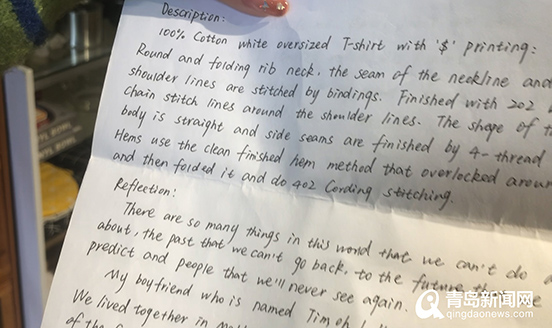 Description:
100% Cotton white oversized T-shirt with '$' printing:
Round and folding rib neck, the seam of the neckline and
shoulder lines are stitched by bindings. Finished with 202
chain stitch lines around the shoulder lines. The shape of
body is straight and side seams are finished by 4-thread
Hems use the clean finished hem method that overlocked
and then folded it and do 402 Cording stitching.
Reflection:
There are so many things in this world that we can't do
about, the past that we can't go back, to the future
predict and people that we'll never see again.
My boyfriend who is named Tim
We lived together in
of the
青岛新闻网
qingdaonews.com